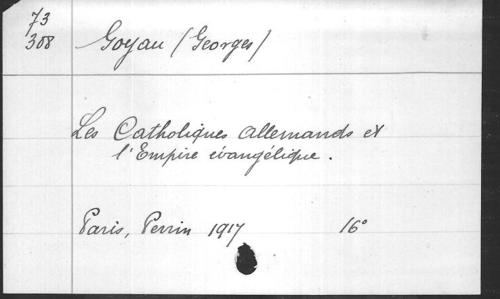 73
308
Goyau (Georges)
Les Catholiques allemands et
l'Empire évangélique.
Paris, Perrin 1917 16°